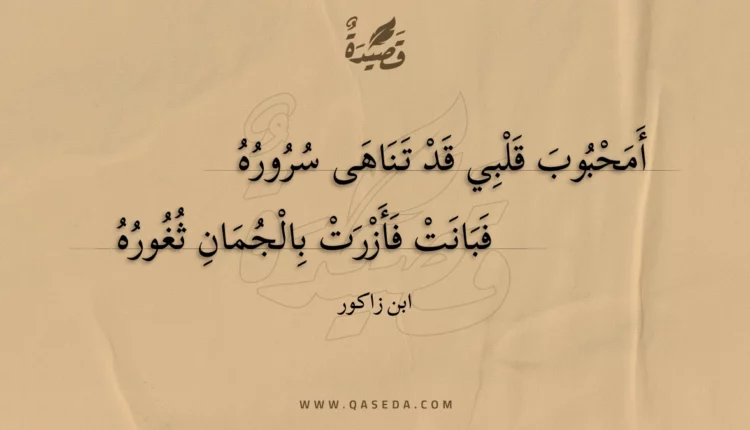 قَصِيدَةٌ
أَمَحْبُوبَ قَلْبِي قَدْ تَنَاهَى سُرُورُهُ
فَبَانَتْ فَأَزْرَتْ بِالْجُمَانِ ثُغُورُهُ
ابن زاكور
WWW.QASEDA.COM